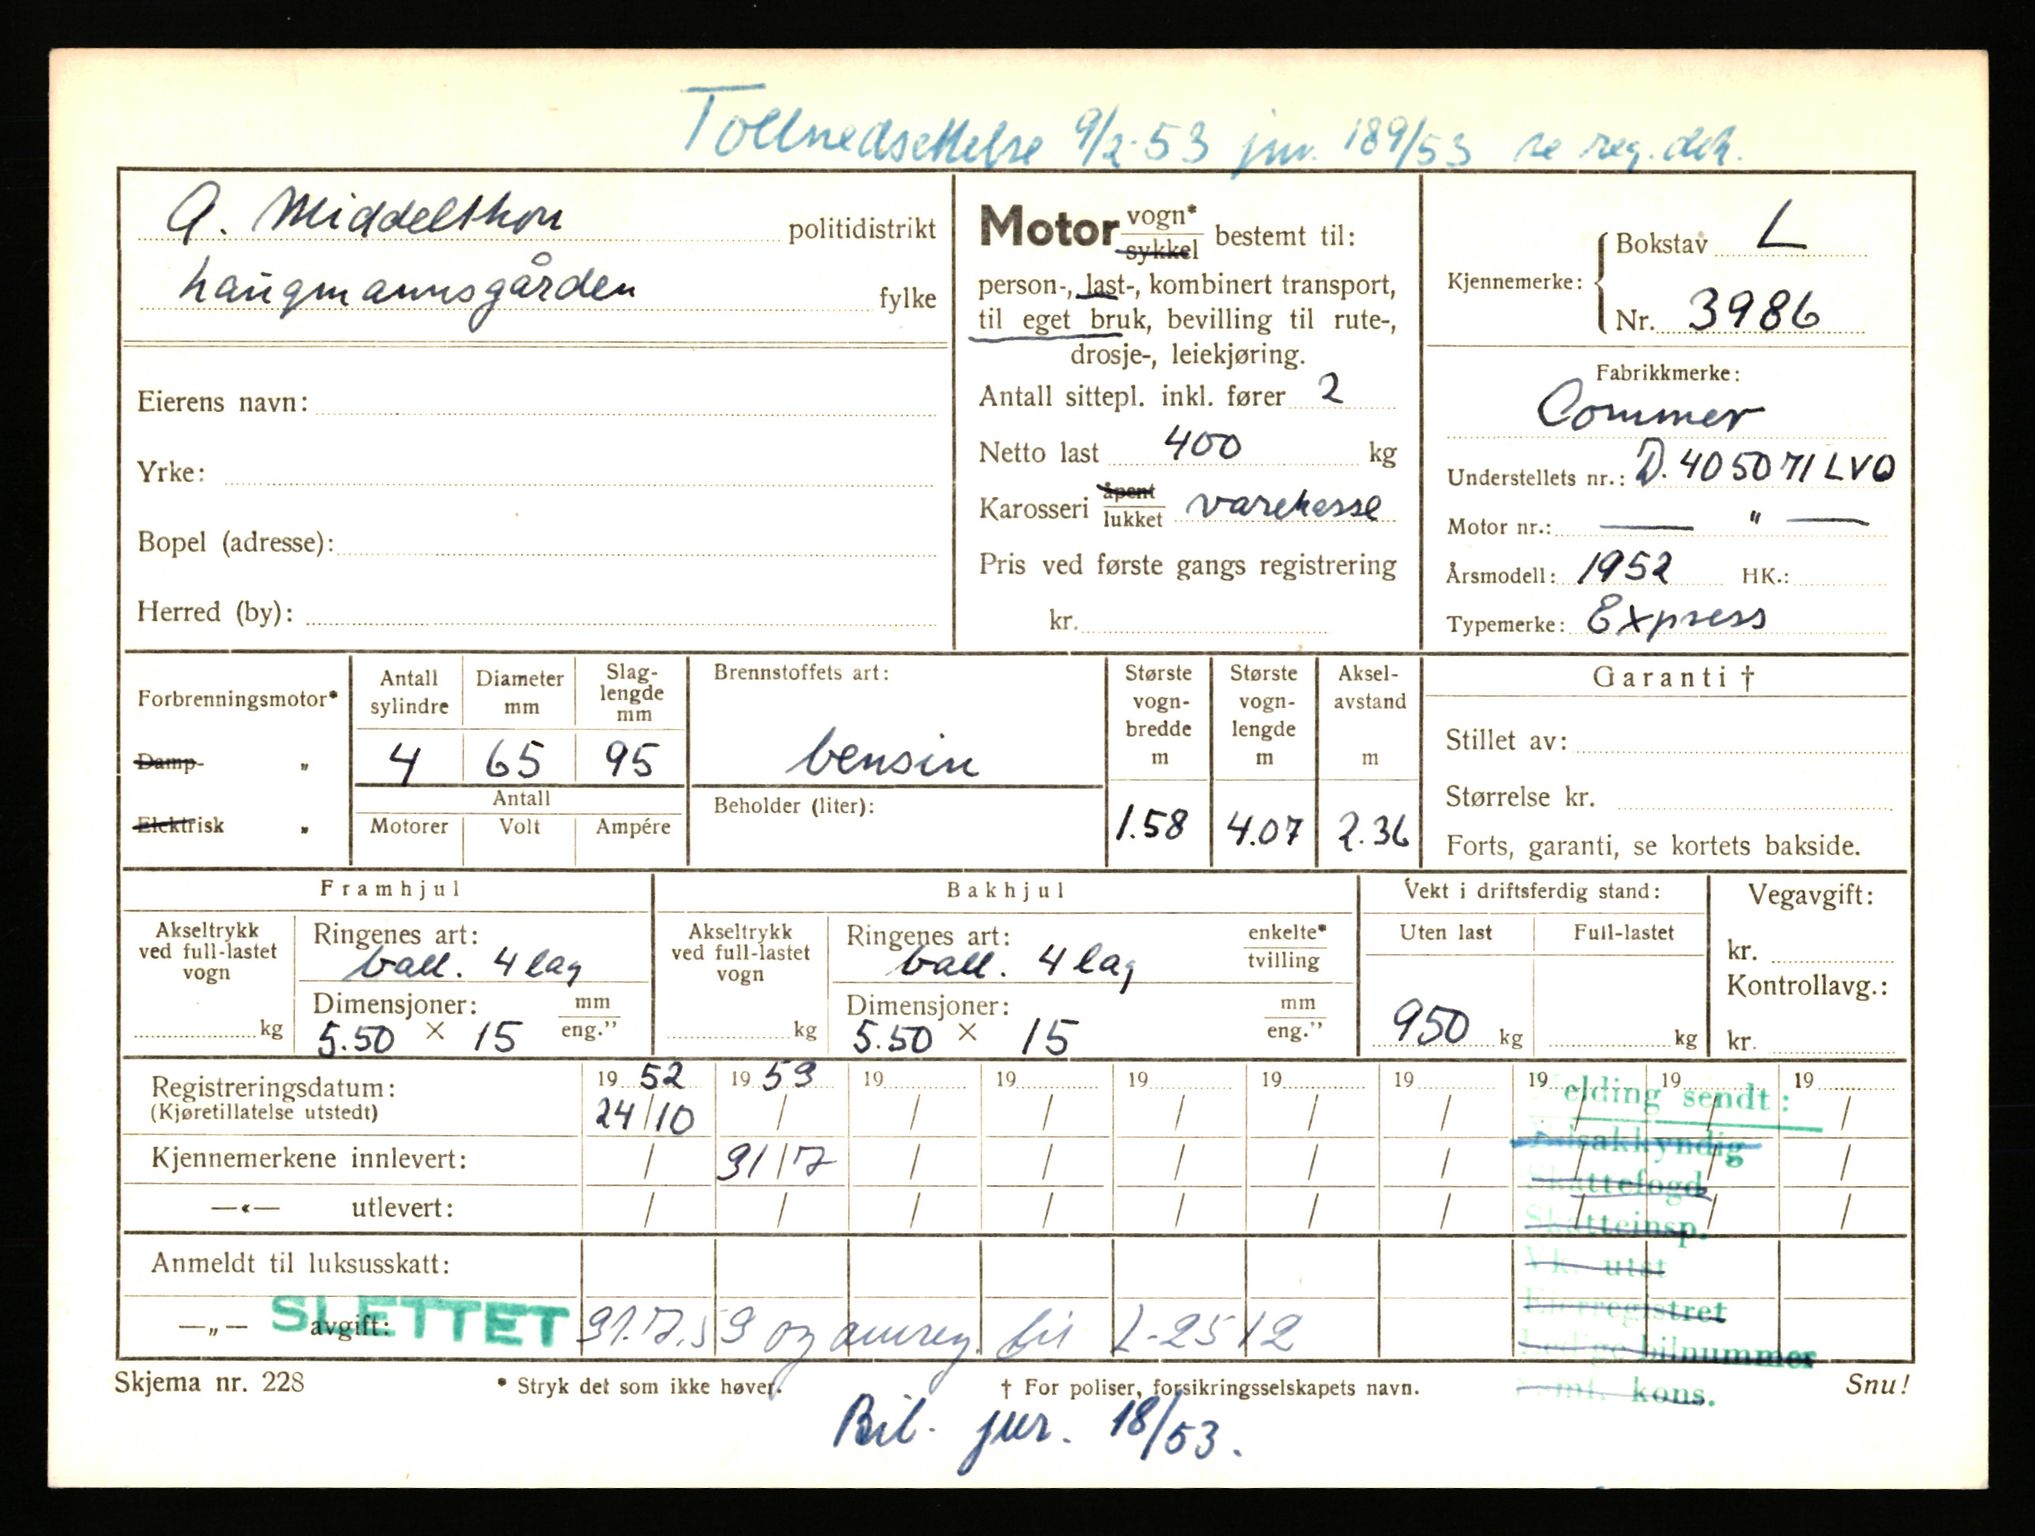 Tollnedsettelse 9/2-53 jnr. 189/53 se reg. dek.
A. Middelthon politidistrikt
Haugmannsgården fylke
Eierens navn:
Yrke:
Bopel (adresse):
Herred (by):
Motor vogn* sykkel bestemt til:
person-, last-, kombinert transport,
til eget bruk, bevilling til rute-,
drosje-, leiekjøring.
Antall sittepl. inkl. fører 2
Netto last 400 kg
Karosseri åpent lukket varekasse
Pris ved første gangs registrering
kr.
Kjennemerke: Bokstav L
Nr. 3986
Fabrikkmerke:
Commer
Understellets nr.: D. 405071 LVO
Motor nr.: — " —
Årsmodell: 1952 HK.:
Typemerke: Express
Forbrenningsmotor*
Damp- "
Elektrisk "
Antall sylindre
4
Diameter mm
65
Slag-lengde mm
95
Antall
Motorer Volt Ampére
Brennstoffets art:
bensin
Beholder (liter):
Største vogn-bredde m
1.58
Største vogn-lengde m
4.07
Aksel-avstand m
2.36
Garanti †
Stillet av:
Størrelse kr.
Forts, garanti, se kortets bakside.
Framhjul
Akseltrykk ved full-lastet vogn
kg
Ringenes art:
ball. 4 lag
Dimensjoner: mm eng."
5.50 × 15
Bakhjul
Akseltrykk ved full-lastet vogn
kg
Ringenes art: enkelte* tvilling
ball. 4 lag
Dimensjoner: mm eng."
5.50 × 15
Vekt i driftsferdig stand:
Uten last Full-lastet
950 kg kg
Vegavgift:
kr.
Kontrollavg.:
kr.
Registreringsdatum: 19 52 19 59 19 19 19 19 19 19 19 19
(Kjøretillatelse utstedt) 24/10 / / / / / / / / /
Kjennemerkene innlevert: / 31/7 / / / / / / / /
—«— utlevert: / / / / / / / / / /
Anmeldt til luksusskatt:
—„— avgift: SLETTET 31.7.59 og omreg. til L-2512
elding sendt:
sakkyndig
Skattefogd
Skatteinsp.
Vk. utst
Eierregistret
Ledige bilnummer
kons.
Skjema nr. 228 * Stryk det som ikke høver. † For poliser, forsikringsselskapets navn. Snu!
Bil. jnr. 18/53.